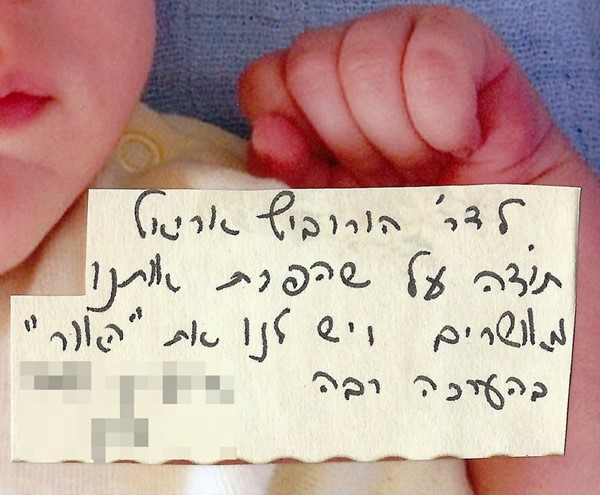 לדר' הורוביץ אריאל
תודה על שהפכת אותנו
מאושרים ויש לנו את "האור"
בהערכה רבה